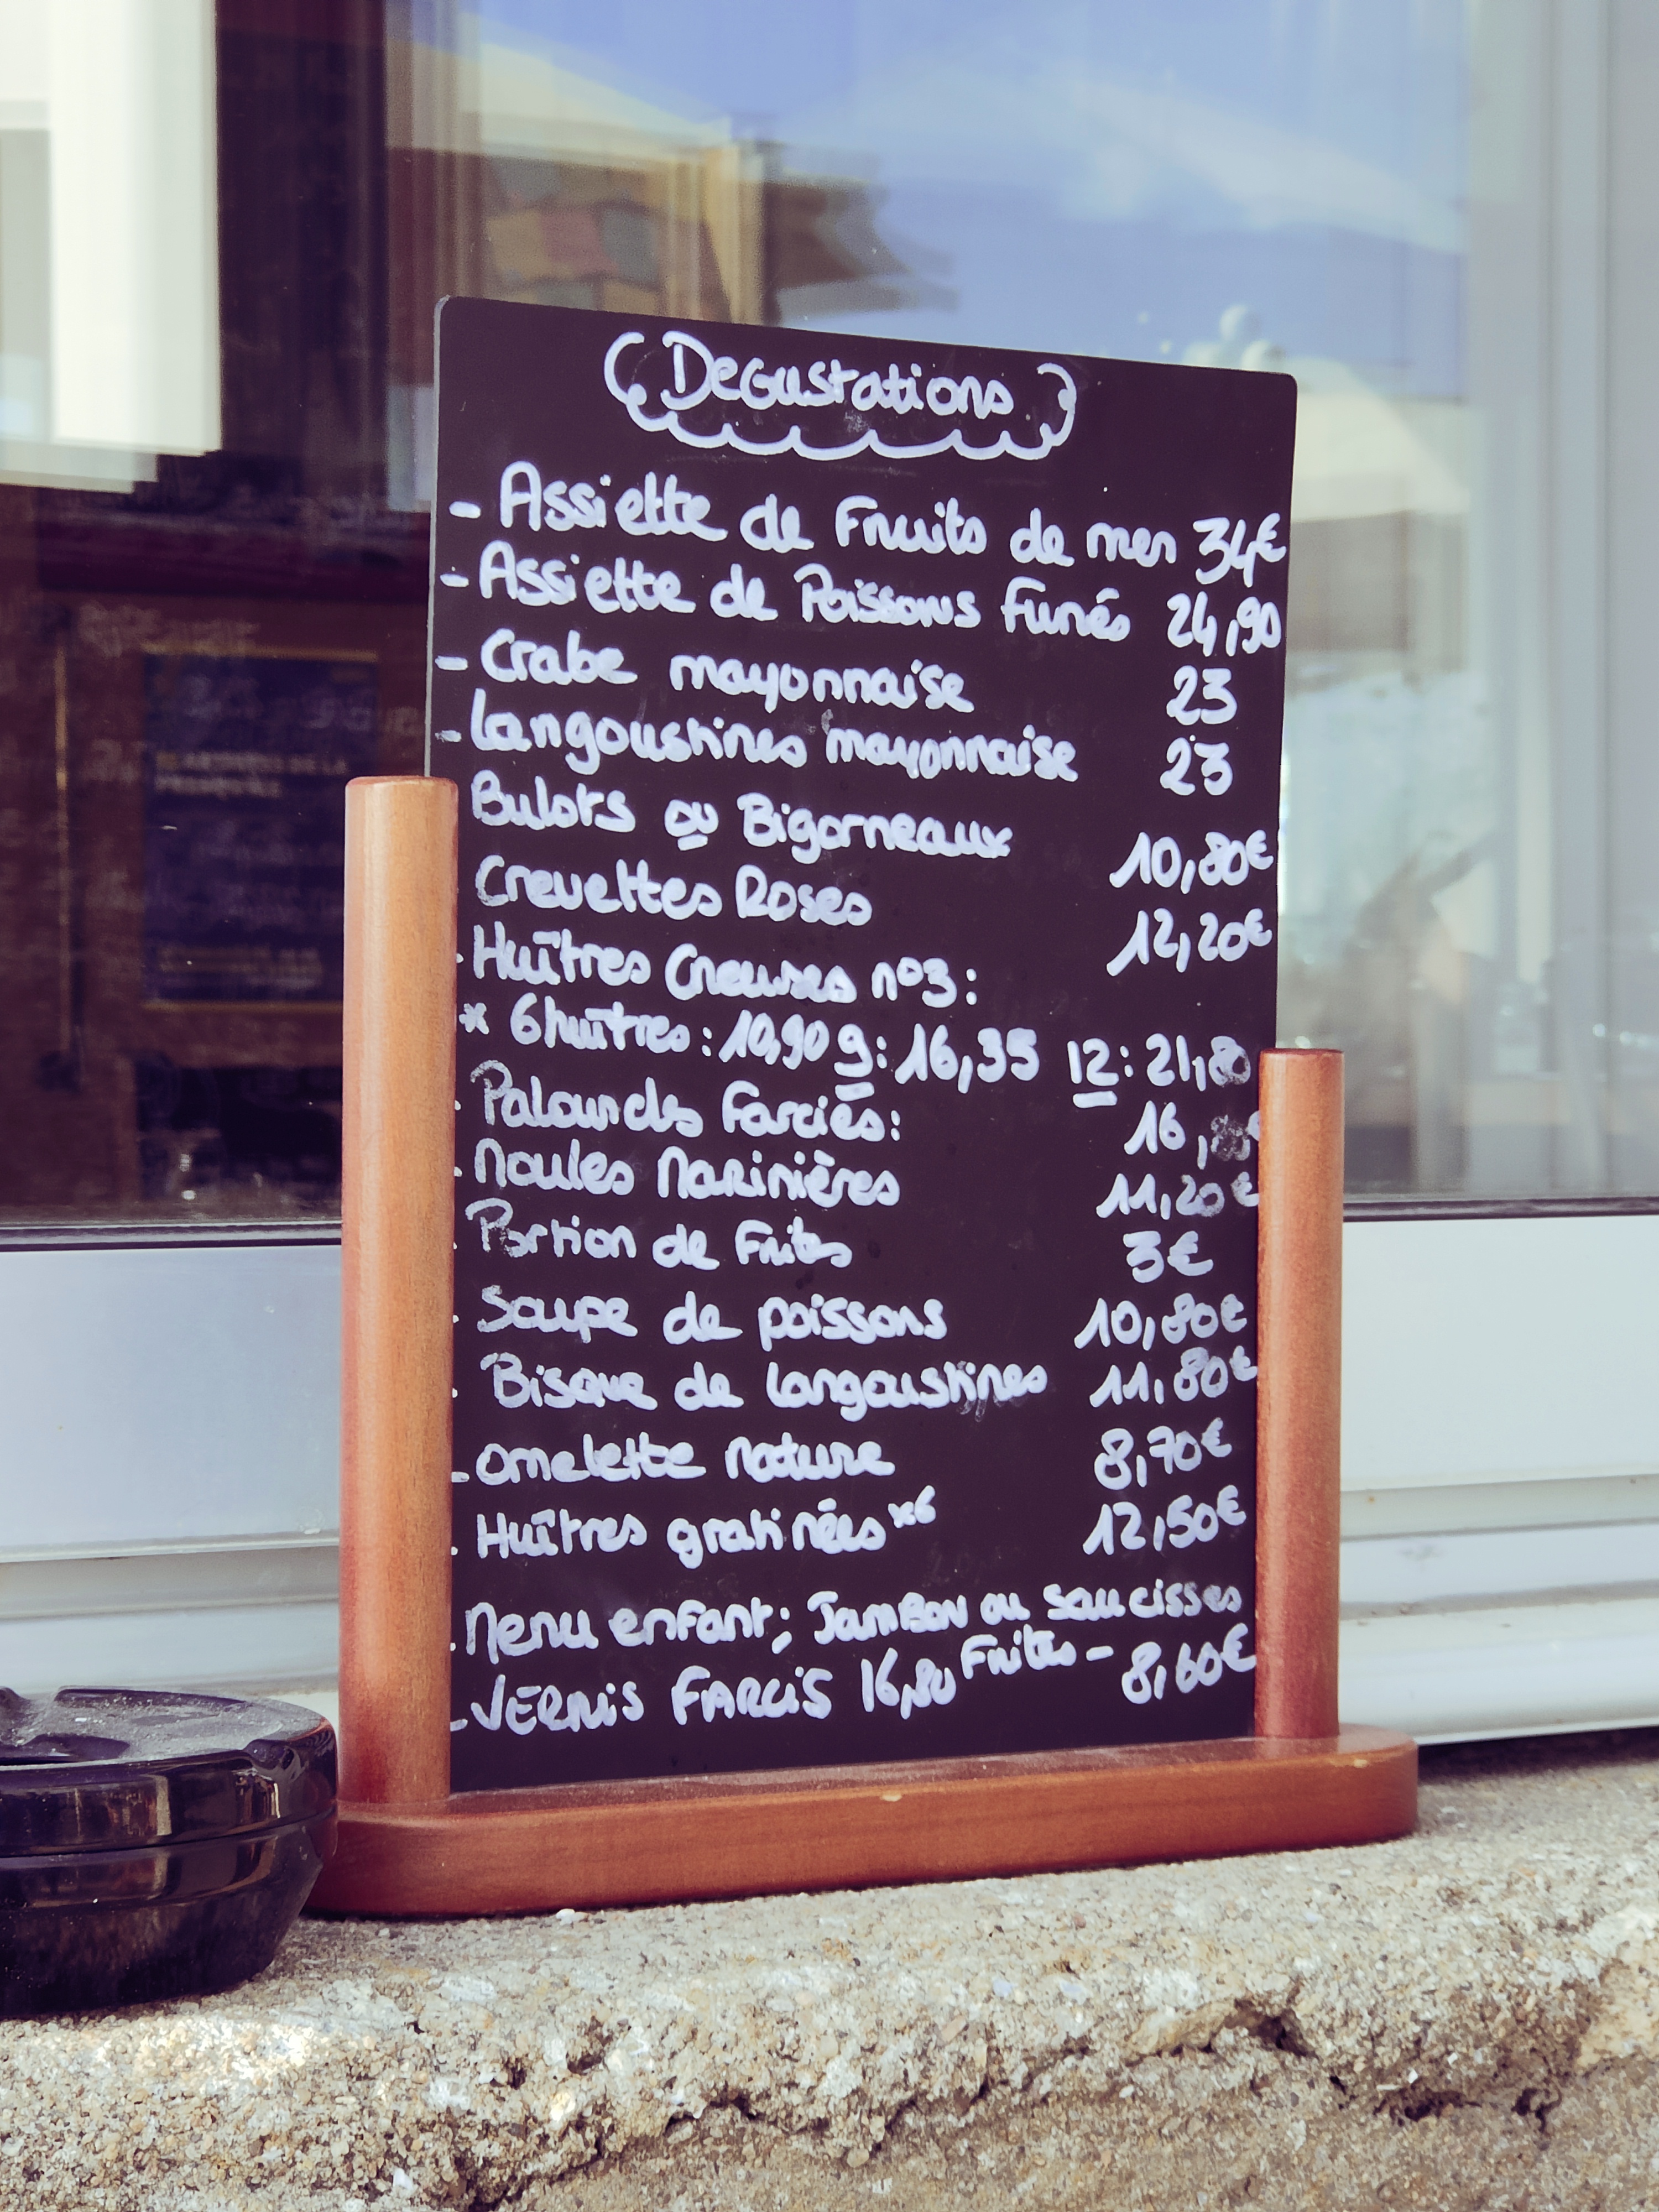 Degustations
- Assiette de Fruits de mer 34€
- Assiette de Poissons Fumés 24,90
- Crabe mayonnaise 23
- Langoustines mayonnaise 23
Bulots ou Bigorneaux 10,80€
Crevettes Roses 12,20€
. Huîtres Creuses n°3 :
* 6 huîtres : 10,90 9 : 16,35 12 : 21,80
. Palourdes Farcies : 16,
. Moules Marinières 11,20€
. Portion de Frites 3€
. Soupe de poissons 10,80€
. Bisque de langoustines 11,80€
- omelette nature 8,70€
. Huîtres gratinées x6 12,50€
. Menu enfant ; Jambon ou saucisses
Frites - 8,60€
- VERNIS FARCIS 16,80